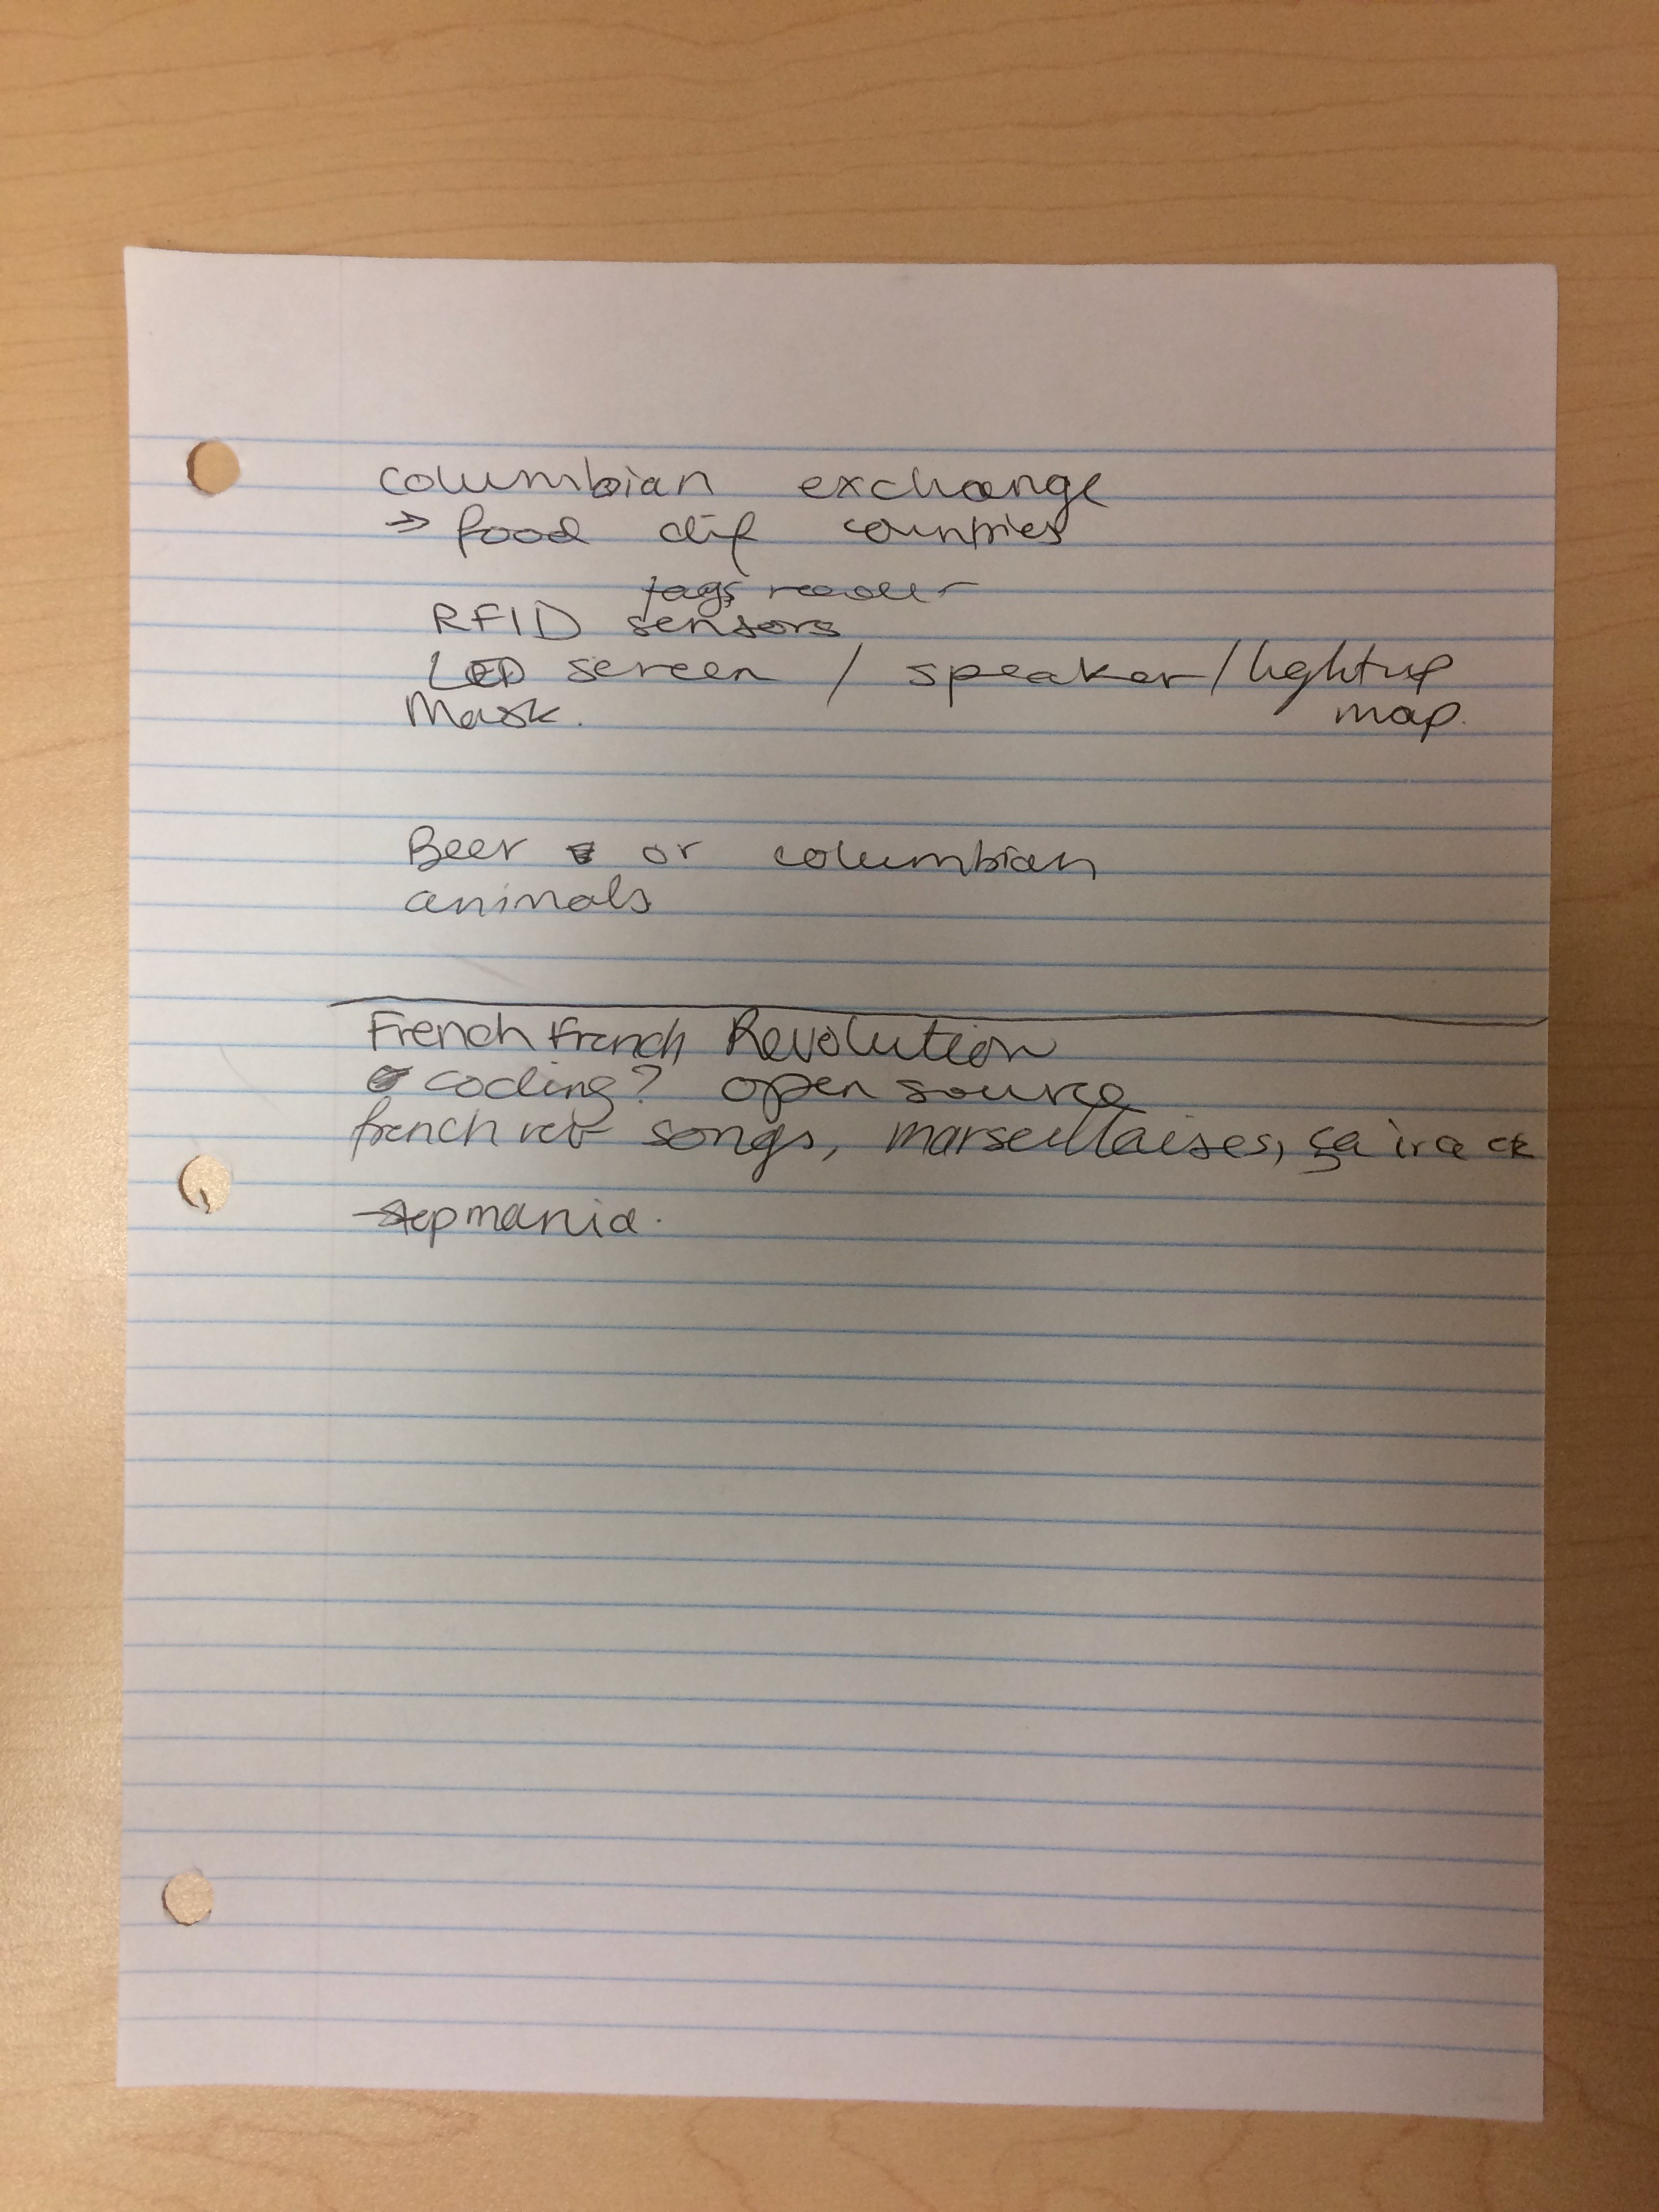 columbian exchange
→ food dif countries
tags reader
RFID sensors
LED screen / speaker / lightup
Mask. map.
Beer or columbian
animals
French French Revolution
coding? open source
french rev songs, marseillaises, ça ira
stepmania.